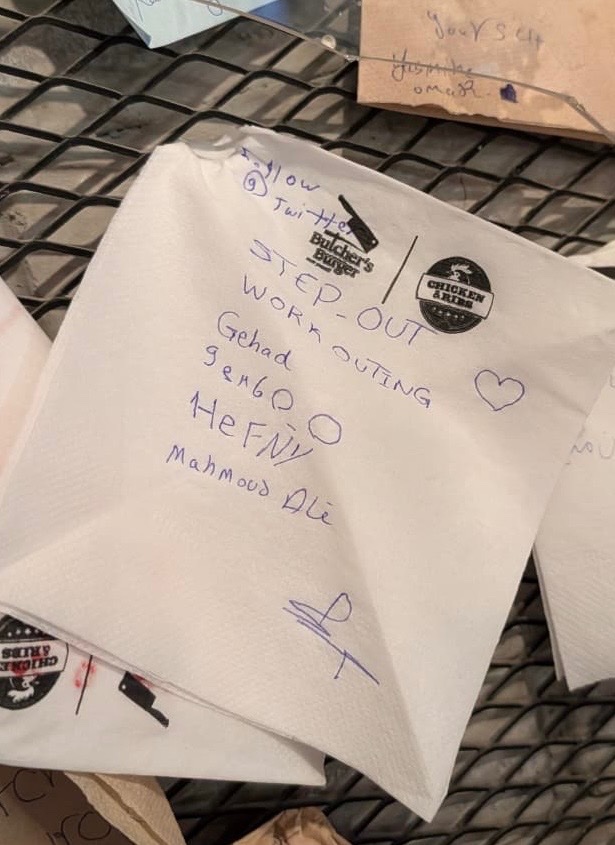 yourself
Yasmine
omar
Follow
@ Twitter
Butcher's
Burger
CHICKEN
& RIBS
STEP-OUT
WORK OUTING
Gehad
HEFNY
Mahmoud Ali
CHICKEN
& RIBS